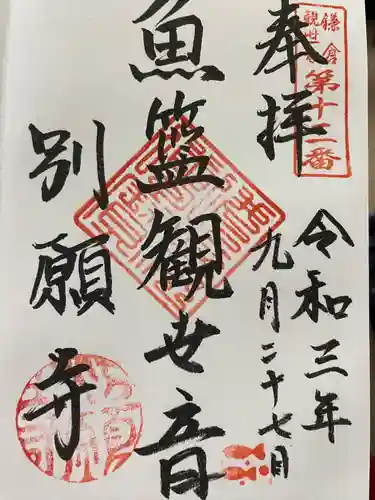 奉拝
鎌倉
観世音
第十二番
令和三年
九月二十七日
魚籃観世音
別願寺